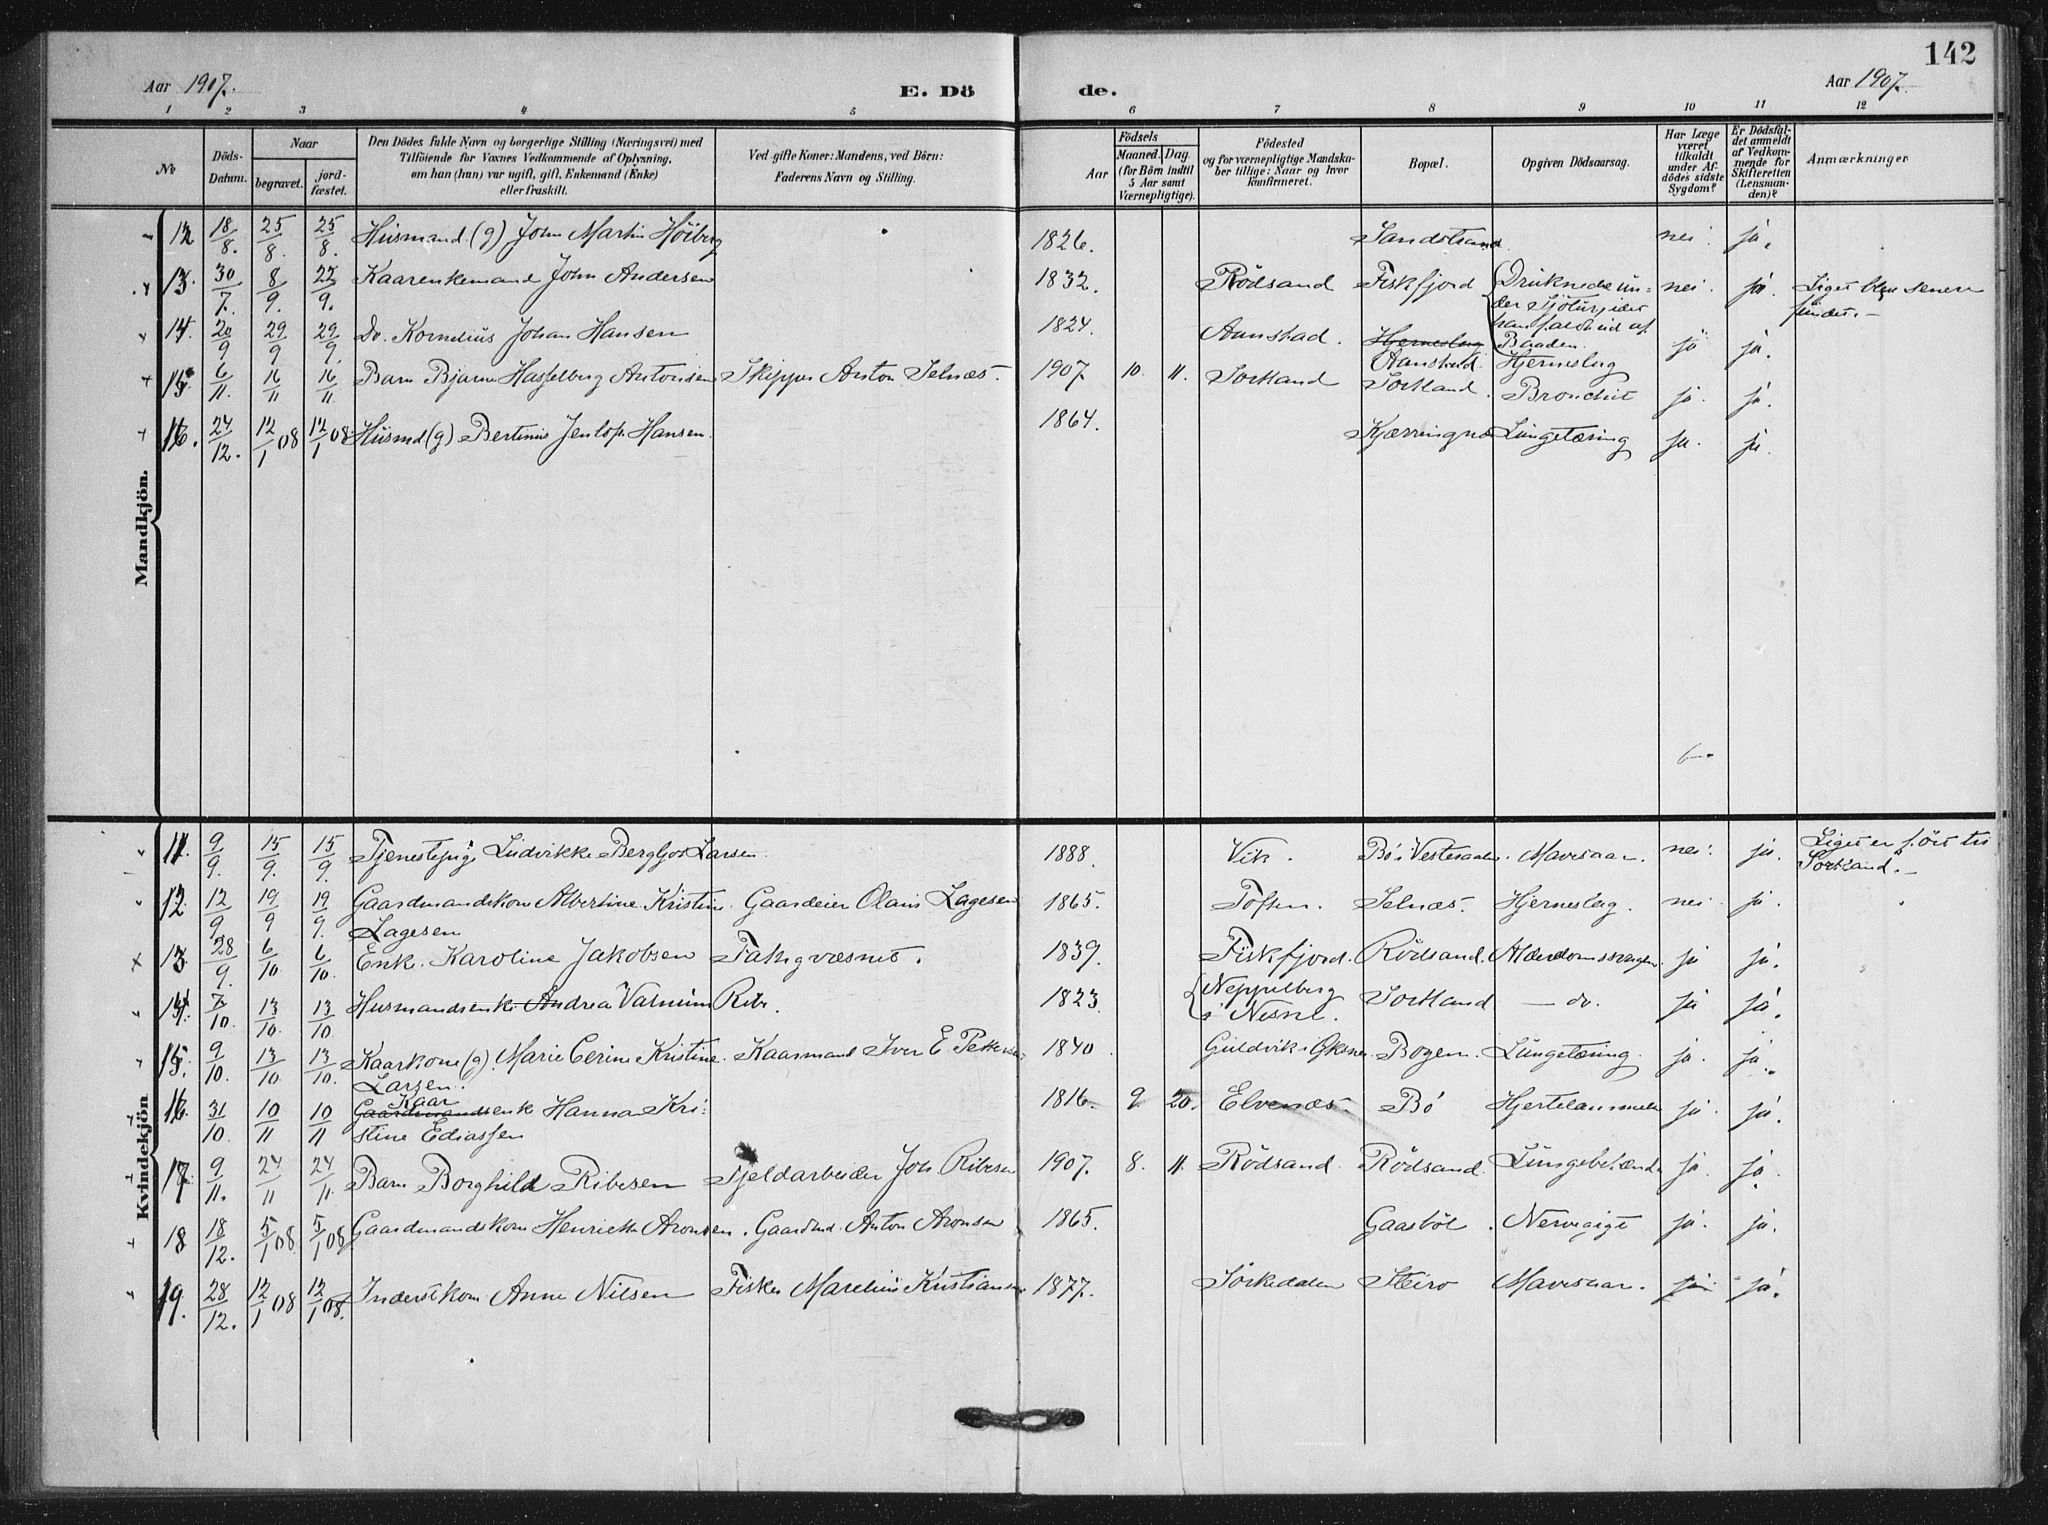 142
Aar 1907. E. Dö de. Aar 1907.
1 2 3 4 5 6 7 8 9 10 11 12
No
Döds-Datum.
Naar
begravet.
jord-fæstet.
Den Dödes fulde Navn og borgerlige Stilling (Næringsvei) med
Tilföiende for Voxnes Vedkommende af Oplysning,
om han (hun) var ugift, gift, Enkemand (Enke)
eller fraskilt.
Ved gifte Koner: Mandens, ved Börn:
Faderens Navn og Stilling.
Födsels
Aar
Maaned. Dag.
(for Börn indtil
5 Aar samt
Værnepligtige).
Födested
og for værnepligtige Mandska-
ber tillige: Naar og hvor
konfirmeret.
Bopæl.
Opgiven Dödsaarsag.
Har Læge
været
tilkaldt
under Af-
dödes sidste
Sygdom?
Er Dödsfal-
det anmeldt
af Vedkom-
mende for
Skifteretten
(Lensman-
den)?
Anmærkninger
Mandkjön.
12 18/8. 25/8. 25/8. Husmand (g) John Martin Höiberg 1826. Sandstrand nei. ja.
13. 30/7. 8/9. 22/9. Kaarenkemand John Andersen 1832. Rödsand Fiskfjord Druknede un- nei. ja. Liget blev senere
der Sjötur, idet fundet.-
han faldt ud af
Baaden.
14. 20/9 29/9 29/9. Do. Kornelius Johan Hansen 1824. Aanstad. Hjerneslag Aanstad. Hjerneslag ja ja.
15. 6/11. 16/11 16/11 Barn Bjarne Hasselberg Antonsen Skipper Anton Selnæs. 1907. 10. 11. Sortland Sortland. Bronchit ja. ja.
16. 24/12. 12/1 08 12/1 08. Husmd (g) Bertinus Jentof. Hansen. 1864. Kjærringnæs Lungetæring ja. ja.
Kvindekjön
11. 9/9. 15/9. 15/9. Tjenestepige Ludvikke Bergljot Larsen. 1888. Vik. Bö i Vesteraalen. Mavesaar. nei. ja. Liget er fört til
Sortland.-
12. 12/9 19/9 19/9. Gaardmandskone Albertine Kristine Gaardeier Olaus Lagesen 1865. Toften. Selnæs. Hjerneslag. nei. ja.
Lagesen
13. 28/9. 6/10. 6/10. Enke. Karoline Jakobsen Fattigvæsnet. 1839. Fiskfjord. Rödsand. Alderdomssvaghed ja ja.
14. 7/10. 13/10. 13/10 Husmandsenke Andrea Valnum Ribe. 1823. Neppelberg Sortland — do. ja ja.
i Nesne.
15. 9/10. 13/10. 13/10. Kaarkone (g). Marie Cerine Kristine Kaarmand Iver E. Pettersen 1840 Guldvik i Öksnes Bogen. Lungetæring. ja. ja.
Larsen.
Kaar
16. 31/10. 10/11 10/11 Gaardmandsenk Hanna Kri- 1816. 9 20. Elvenæs. Bö Hjertelammelse ja. ja.
stine Ediassen
17 9/11. 24/11 24/11. Barn Borghild Ribesen Fjeldarbeider Joh. Ribesen 1907. 8. 11. Rödsand. Rödsand. Lungebetænd. ja. ja.
18 18/12. 5/1 08. 5/1 08. Gaardmandskone Henriette Aronsen. Gaardmd. Anton Aronsen 1865. Gaasböl. Nervegigt ja. ja.
19. 28/12. 12/1 08 12/1 08. Inderstkone Anne Nilsen Fisker Marelius Kristiansen 1877. Sörkedalen Steiro Mavesaar. ja. ja.